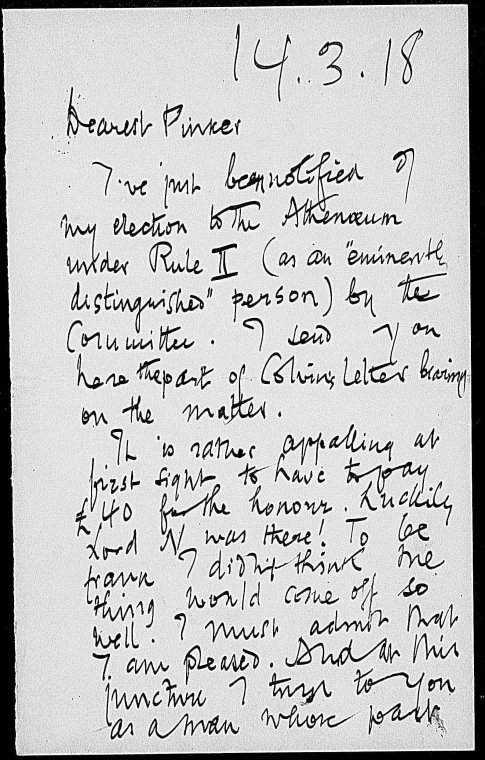 14.3.18
Dearest Pinker
I've just been notified of
my election to the Athenæum
under Rule II (as an "eminently
distinguished" person) by the
Committee. I send you
here the part of Colvin's letter bearing
on the matter.
It is rather appalling at
first sight to have to pay
£40 for the honour. Luckily
Lord N was there! To be
frank I didn't think the
thing would come off so
well. I must admit that
I am pleased. And at this
juncture I turn to you
as a man whose past